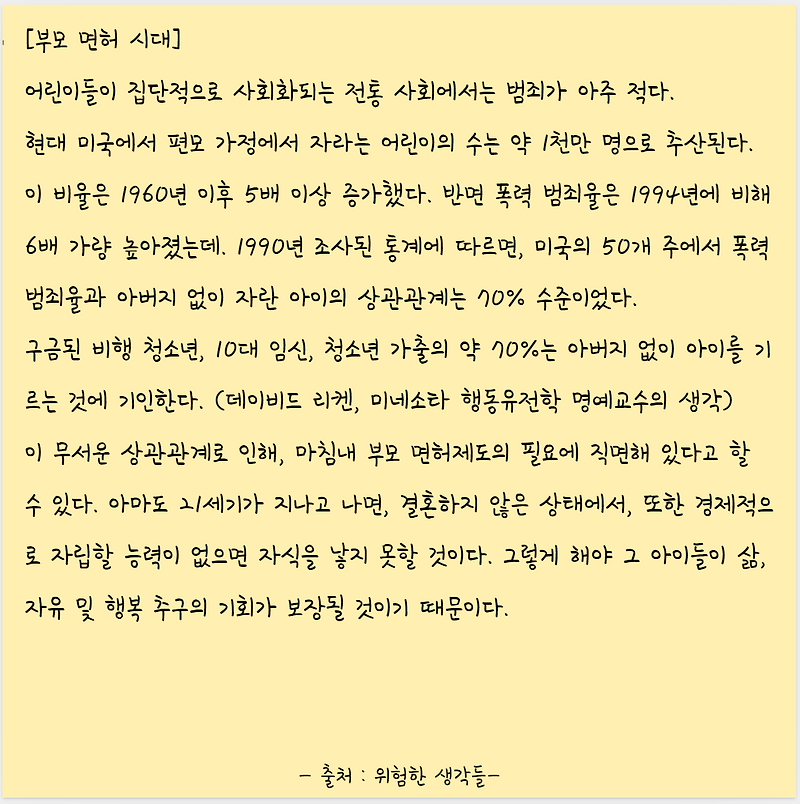 [부모 면허 시대]
어린이들이 집단적으로 사회화되는 전통 사회에서는 범죄가 아주 적다.
현대 미국에서 편모 가정에서 자라는 어린이의 수는 약 1천만 명으로 추산된다.
이 비율은 1960년 이후 5배 이상 증가했다. 반면 폭력 범죄율은 1994년에 비해
6배 가량 높아졌는데. 1990년 조사된 통계에 따르면, 미국의 50개 주에서 폭력
범죄율과 아버지 없이 자란 아이의 상관관계는 70% 수준이었다.
구금된 비행 청소년, 10대 임신, 청소년 가출의 약 70%는 아버지 없이 아이를 기
르는 것에 기인한다. (데이비드 리켄, 미네소타 행동유전학 명예교수의 생각)
이 무서운 상관관계로 인해, 마침내 부모 면허제도의 필요에 직면해 있다고 할
수 있다. 아마도 21세기가 지나고 나면, 결혼하지 않은 상태에서, 또한 경제적으
로 자립할 능력이 없으면 자식을 낳지 못할 것이다. 그렇게 해야 그 아이들이 삶,
자유 및 행복 추구의 기회가 보장될 것이기 때문이다.
- 출처 : 위험한 생각들-